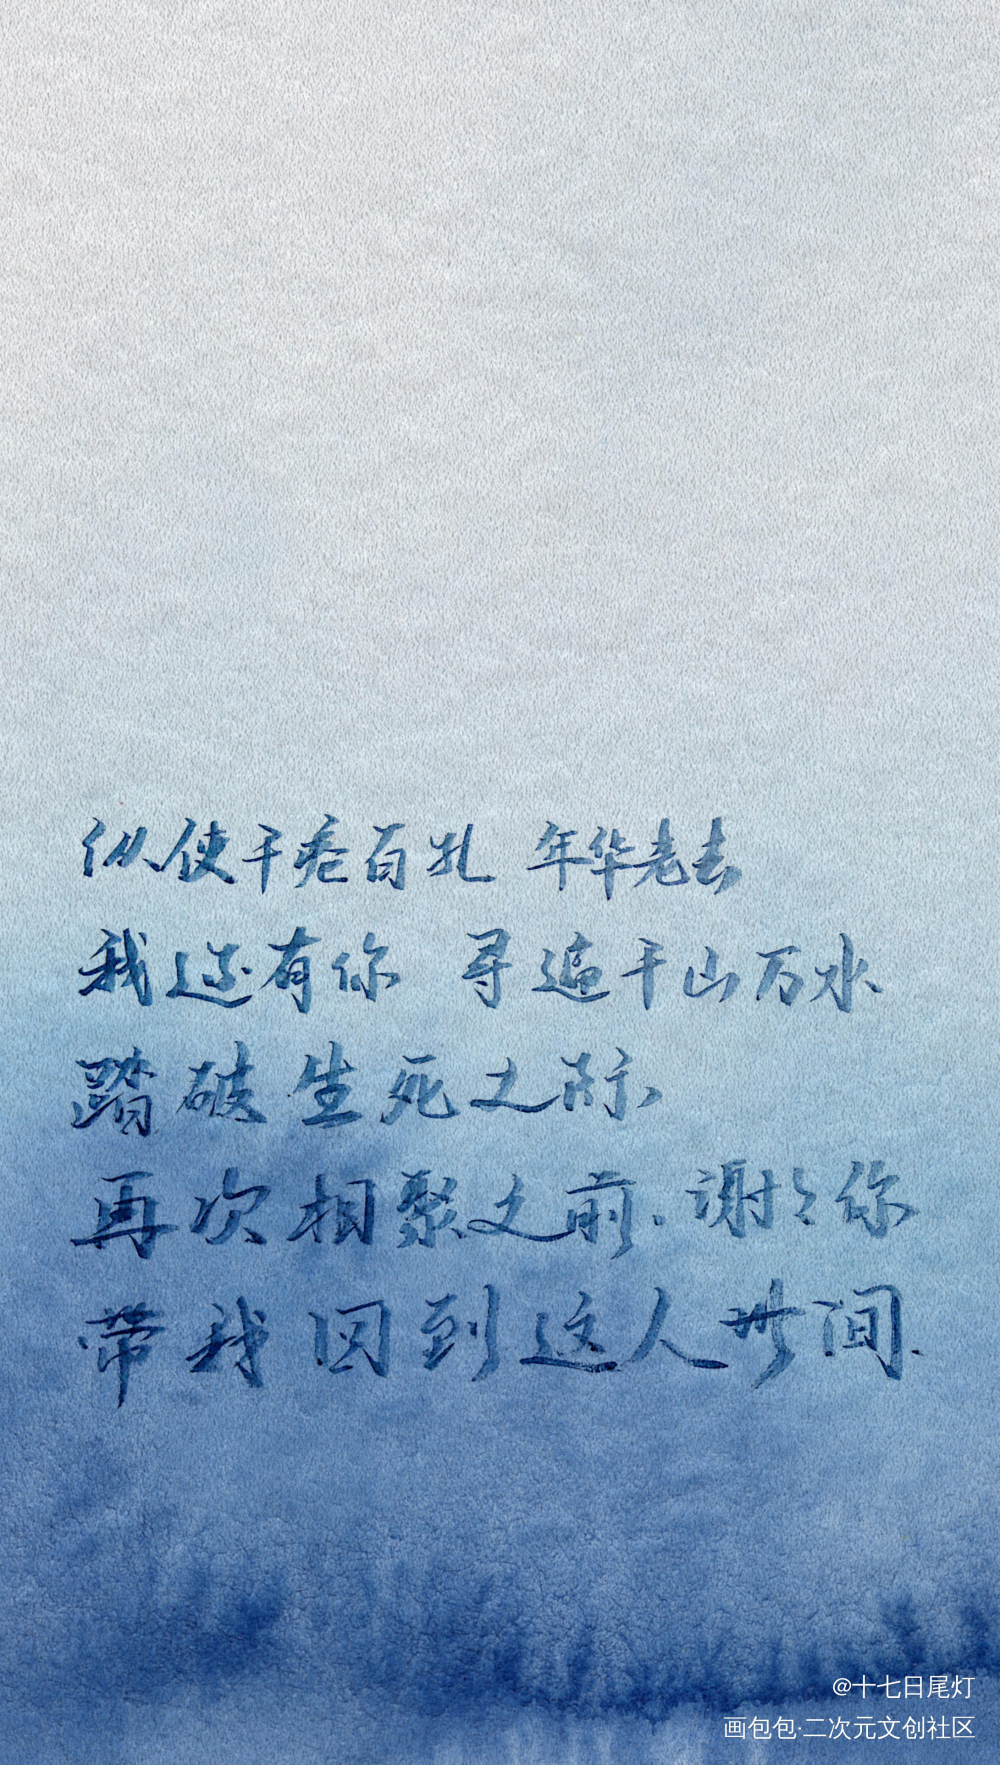 纵使千疮百孔 年华老去
我还有你 寻遍千山万水
踏破生死之际
再次相聚之前.谢谢你
带我回到这人世间.
@十七日尾灯
画包包·二次元文创社区